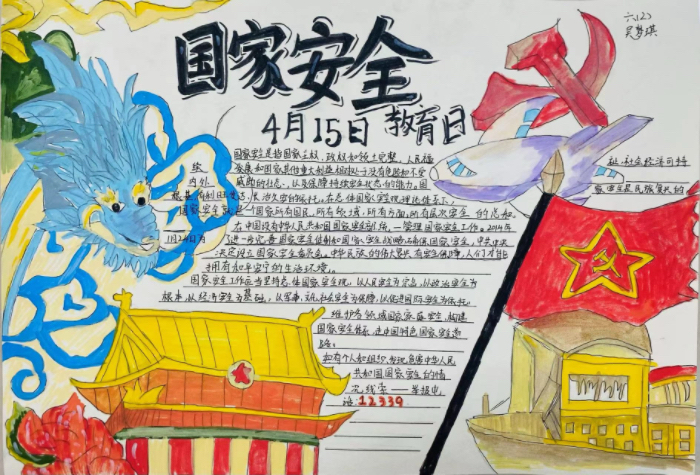 六(2)
吴梦琪
国家安全
4月15日 教育日
国家安全是指国家主权、政权和领土完整、人民福
祉、社会经济可持
续
发展和国家其他重大利益相对处于没有危险和不受
内外
威胁的状态，以及保障持续安全状态的能力。国
家安全是民族复兴的
根基
国家安全
是一个国家所有国民、所有领域、所有方面、所有层次安全的总和
1月24日
在中国设有中华人民共和国国家安全部统一管理国家安全工作。2014年
进一步完善国家安全体制和国家安全战略，确保国家安全，中共中央
决定设立国家安全委员会。
拥有和平安宁的生活环境。
国家安全工作应当坚持总体国家安全观，以人民安全为宗旨，以政治安全为
根本，以经济安全为基础，以军事、文化、社会安全为保障，以促进国际安全为依托，
维护各领域国家安全，构建
国家安全体系，走中国特色国家安全道
路。
和有个人和组织，发现危害中华人民
共和国国家安全的情
况线索——举报电
话：12339